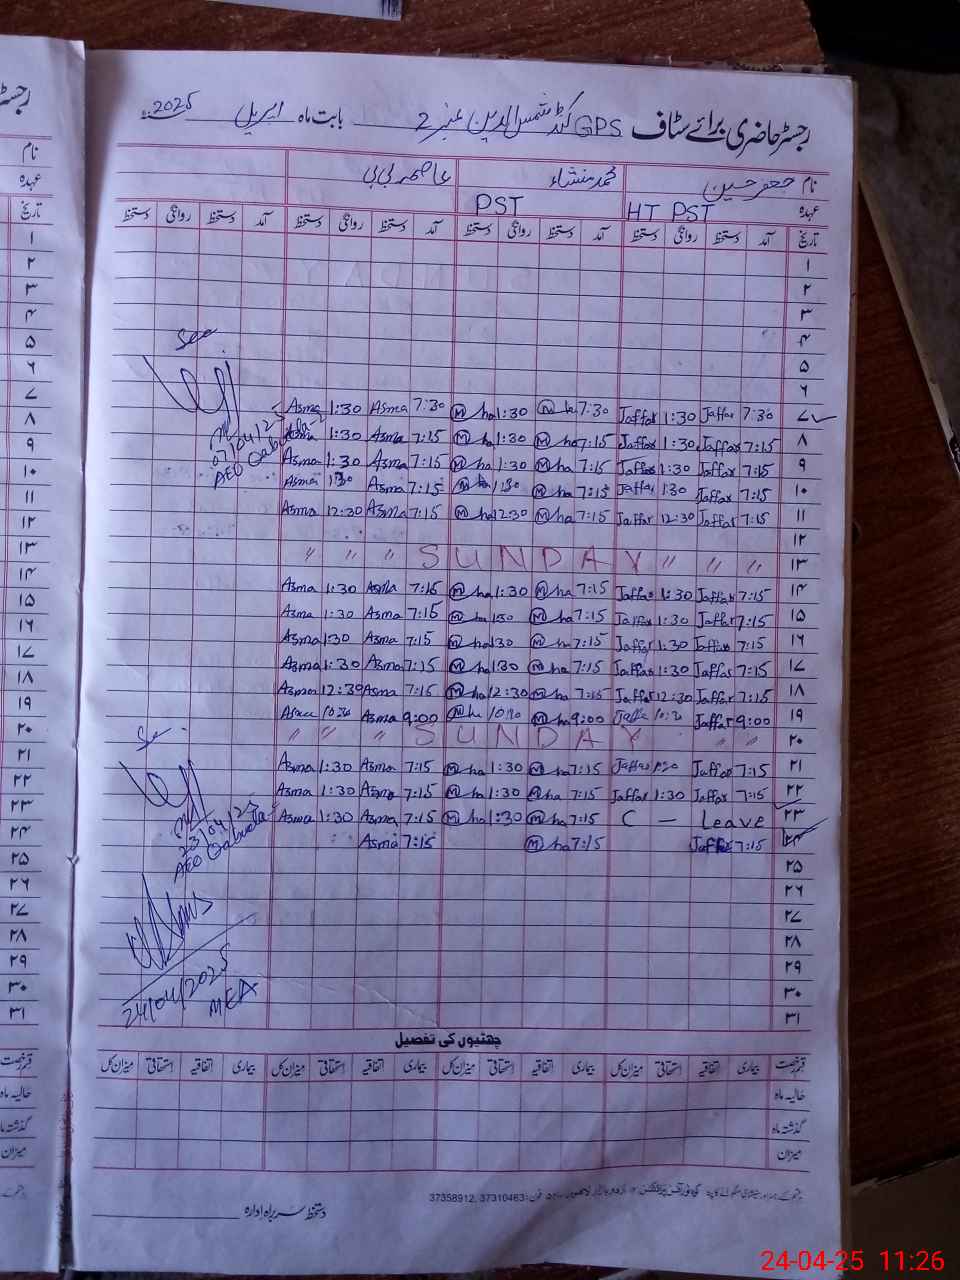 رجسٹر حاضری برائے سٹاف GPS شمس الدین نمبر 2 بابت ماہ اپریل 2025
نام جعفر حسین محمد منشاء عاصمہ بی بی
عہدہ HT PST PST
تاریخ آمد دستخط روانگی دستخط آمد دستخط روانگی دستخط آمد دستخط روانگی دستخط آمد دستخط روانگی دستخط
۱
۲
۳
۴
۵
۶
۷ 7:30 Jaffar 1:30 Jaffar 7:30 M ha 1:30 M ha 7:30 Asma 1:30 Asma
۸ 7:15 Jaffar 1:30 Jaffar 7:15 M ha 1:30 M ha 7:15 Asma 1:30 Asma
۹ 7:15 Jaffar 1:30 Jaffar 7:15 M ha 1:30 M ha 7:15 Asma 1:30 Asma
۱۰ 7:15 Jaffar 1:30 Jaffar 7:15 M ha 1:30 M ha 7:15 Asma 1:30 Asma
۱۱ 7:15 Jaffar 12:30 Jaffar 7:15 M ha 12:30 M ha 7:15 Asma 12:30 Asma
۱۲
۱۳ " " " SUNDAY " " "
۱۴ 7:15 Jaffar 1:30 Jaffar 7:15 M ha 1:30 M ha 7:15 Asma 1:30 Asma
۱۵ 7:15 Jaffar 1:30 Jaffar 7:15 M ha 1:30 M ha 7:15 Asma 1:30 Asma
۱۶ 7:15 Jaffar 1:30 Jaffar 7:15 M ha 1:30 M ha 7:15 Asma 1:30 Asma
۱۷ 7:15 Jaffar 1:30 Jaffar 7:15 M ha 1:30 M ha 7:15 Asma 1:30 Asma
۱۸ 7:15 Jaffar 12:30 Jaffar 7:15 M ha 12:30 M ha 7:15 Asma 12:30 Asma
۱۹ 9:00 Jaffar 10:30 Jaffar 9:00 M ha 10:30 M ha 9:00 Asma 10:30 Asma
۲۰ " " " SUNDAY " "
۲۱ 7:15 Jaffar 1:30 Jaffar 7:15 M ha 1:30 M ha 7:15 Asma 1:30 Asma
۲۲ 7:15 Jaffar 1:30 Jaffar 7:15 M ha 1:30 M ha 7:15 Asma 1:30 Asma
۲۳ C — Leave 7:15 M ha 1:30 M ha 7:15 Asma 1:30 Asma
۲۴ 7:15 Jaffar 7:15 M ha 7:15 Asma
۲۵
۲۶
۲۷
۲۸
۲۹
۳۰
۳۱
See
07/04/25
AEO Qabula-2
23/04/25
AEO Qabula-2
24/04/2025
MEA
چھٹیوں کی تفصیل
قسم رخصت بیماری اتفاقیہ استحقاقی میزان کل بیماری اتفاقیہ استحقاقی میزان کل بیماری اتفاقیہ استحقاقی میزان کل بیماری اتفاقیہ استحقاقی میزان کل
حالیہ ماہ
گذشتہ ماہ
میزان
فون: 37310463, 37358912
دستخط سربراہ ادارہ
رجسٹر
نام
عہدہ
تاریخ
۱
۲
۳
۴
۵
۶
۷
۸
۹
۱۰
۱۱
۱۲
۱۳
۱۴
۱۵
۱۶
۱۷
۱۸
۱۹
۲۰
۲۱
۲۲
۲۳
۲۴
۲۵
۲۶
۲۷
۲۸
۲۹
۳۰
۳۱
قسم رخصت
حالیہ ماہ
گذشتہ ماہ
میزان
24-04-25 11:26